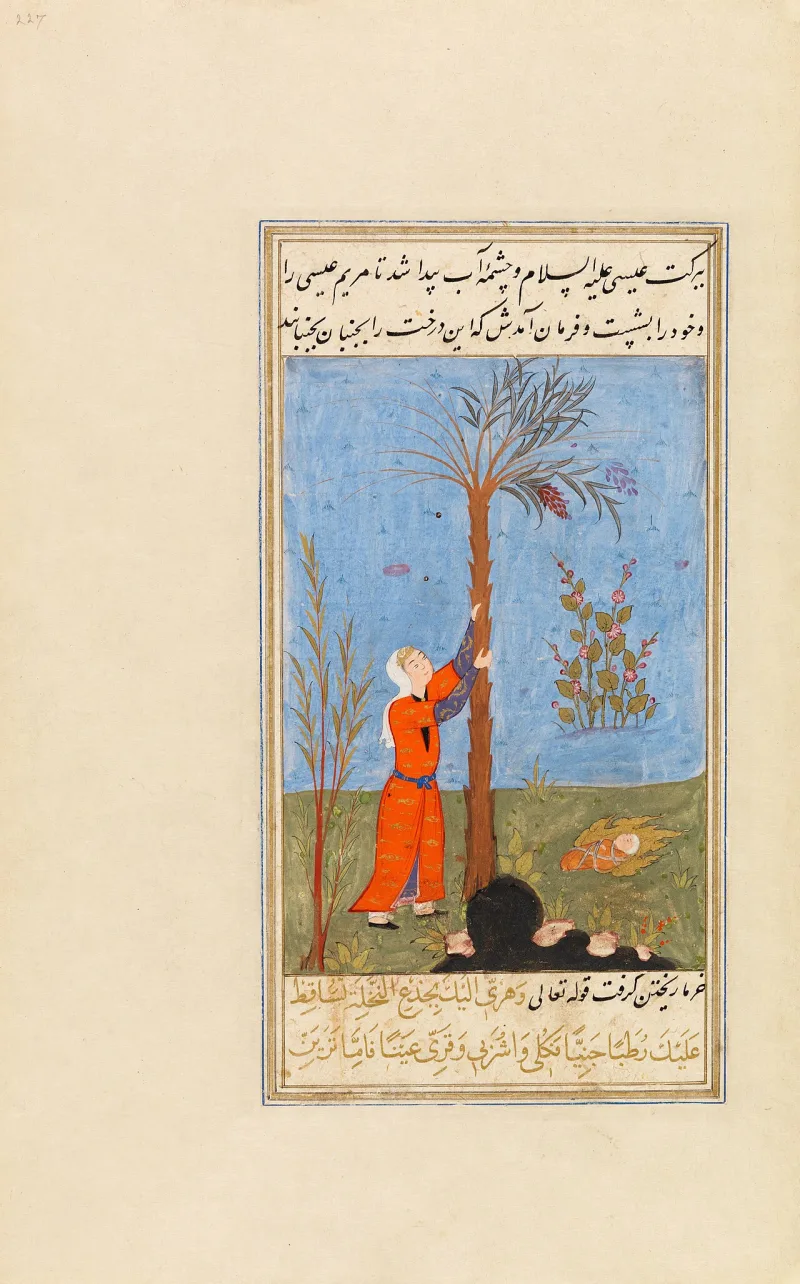 227
ببرکت عیسی علیه السلام و چشمهٔ آب پیدا شد تا مریم عیسی را
و خود را بشست و فرمان آمدش که این درخت را بجنبان بجنبانید
خرما ریختن کرفت قوله تعالی وَهُزِّی اِلَیْكِ بِجِذْعِ النَّخْلَةِ تُسَاقِطْ
عَلَیْكِ رُطَبًا جَنِیًّا فَكُلِی وَاشْرَبِی وَقَرِّی عَیْنًا فَاِمَّا تَرَیِنَّ